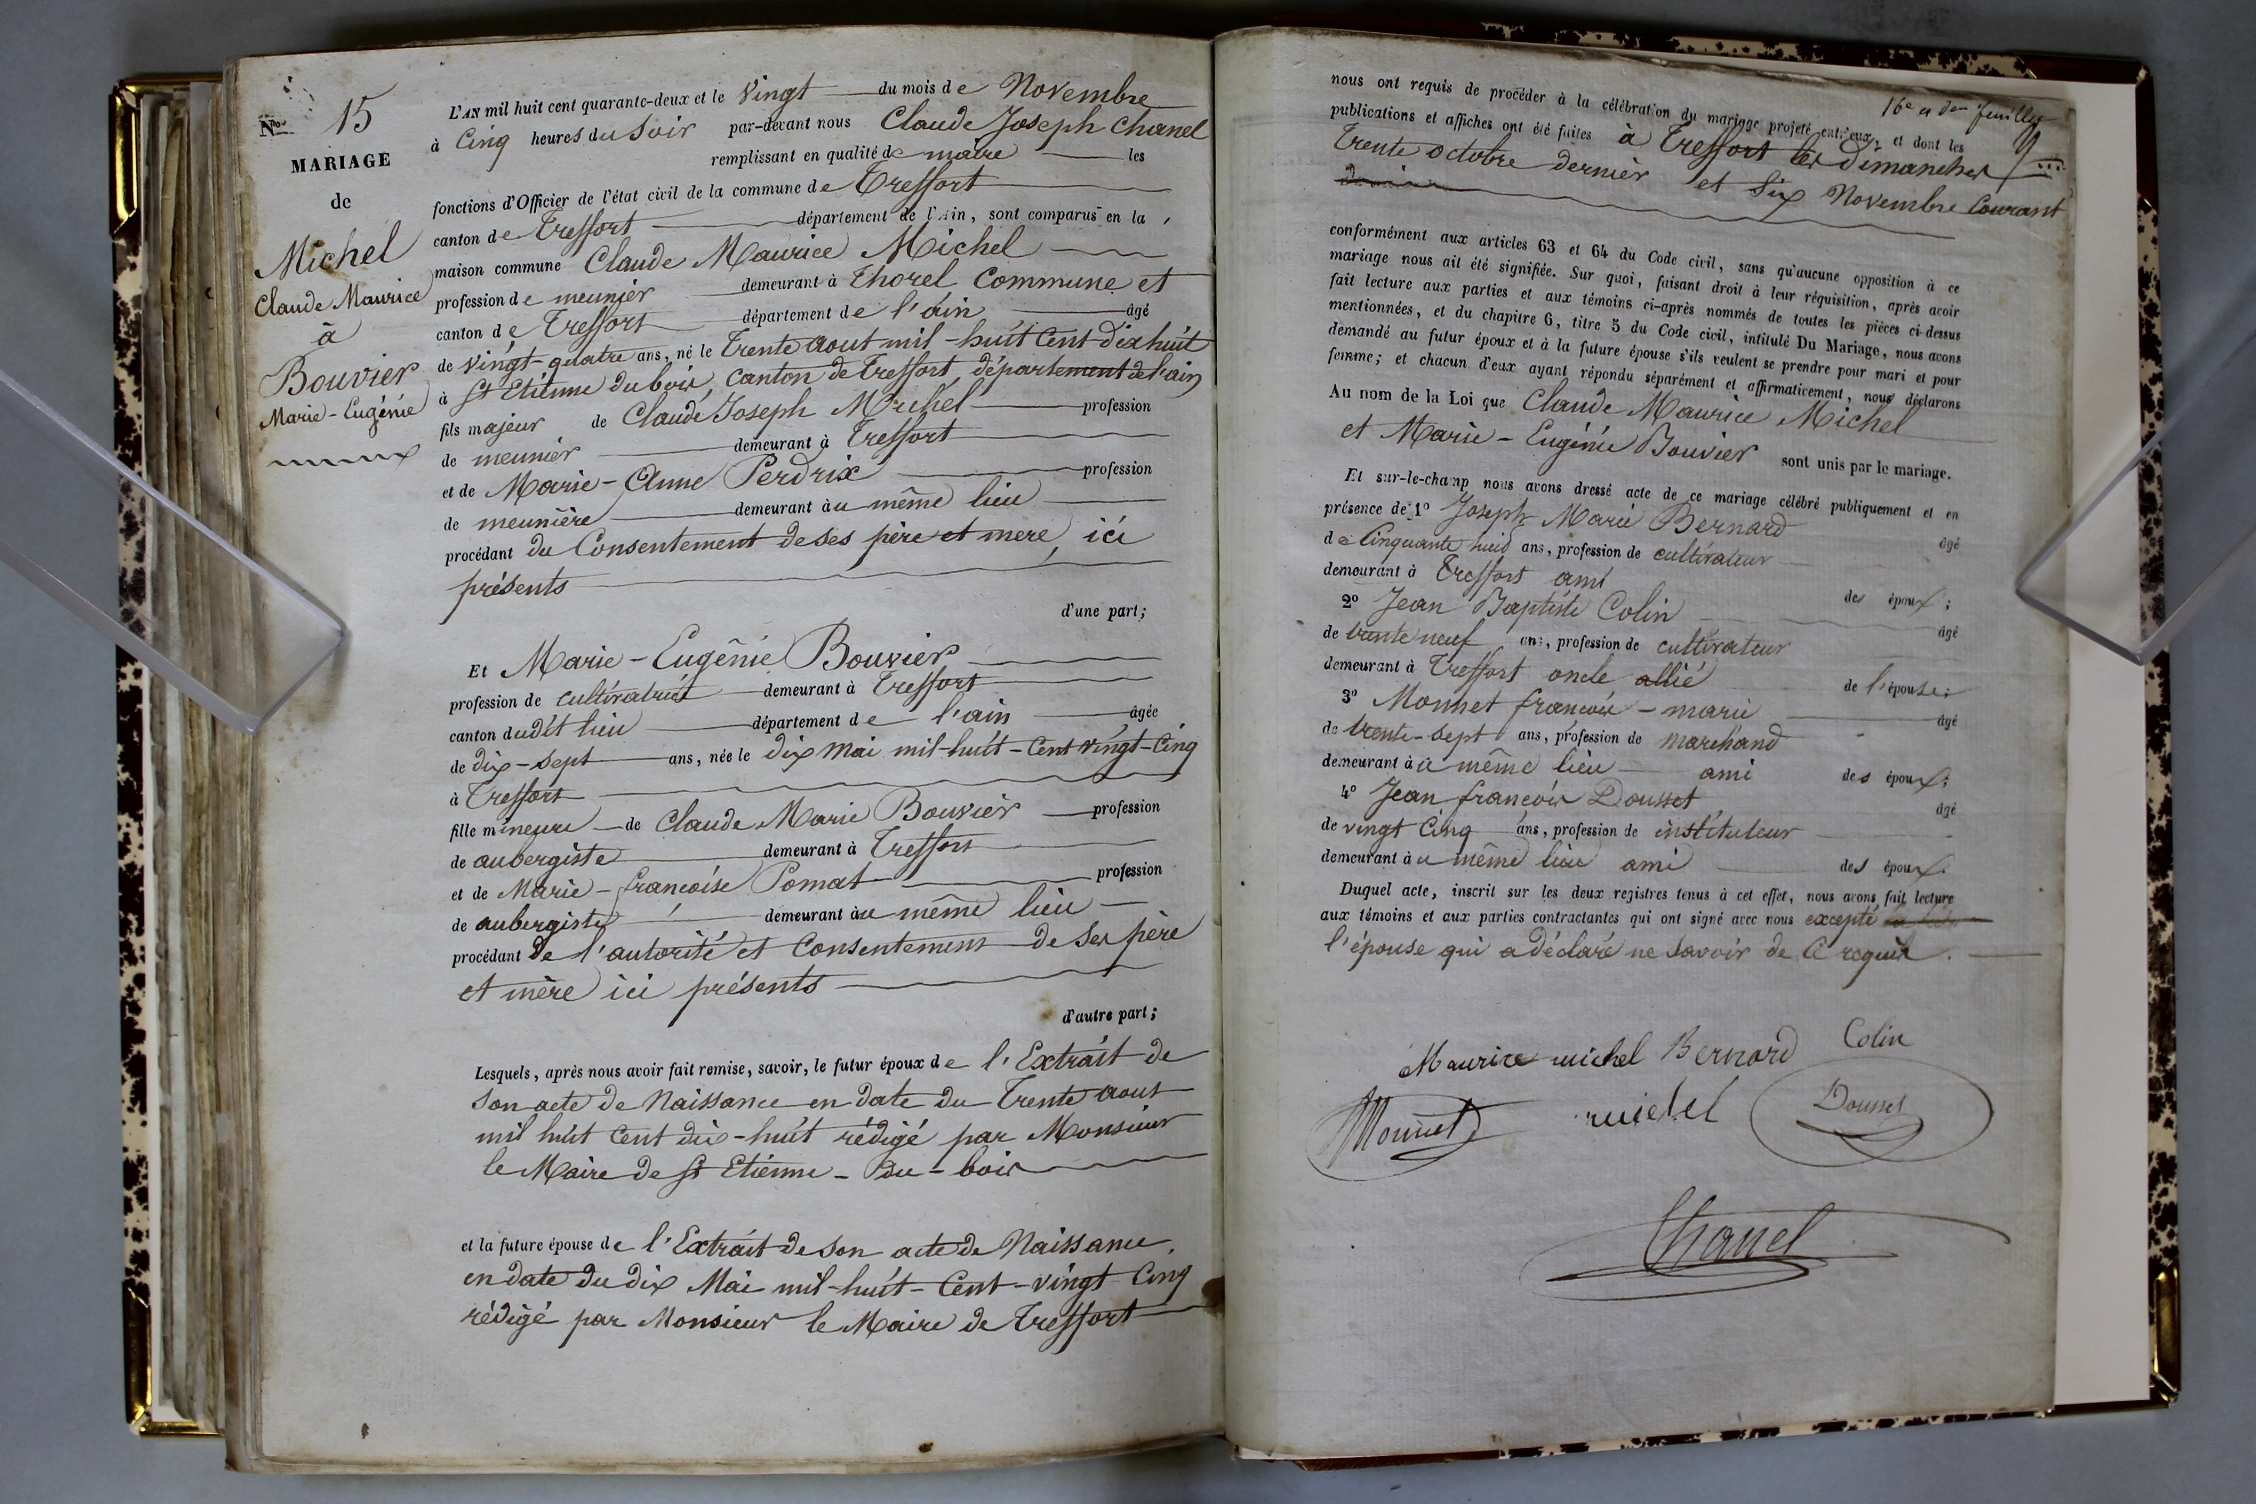 Nº 15
MARIAGE
de
Michel
Claude Maurice
à
Bouvier
Marie-Eugénie
L'AN mil huit cent quarante-deux et le Vingt du mois de Novembre
à Cinq heures du Soir par-devant nous Claude Joseph Chanel
remplissant en qualité de maire les
fonctions d'Officier de l'état civil de la commune de Treffort
canton de Treffort département de l'Ain, sont comparus en la
maison commune Claude Maurice Michel
profession de meunier demeurant à Thorel Commune et
canton de Treffort département de l'ain âgé
de vingt-quatre ans, né le Trente aout mil-huit Cent dix huit
à St Etienne du bois, canton de Treffort, département de l'ain
fils majeur de Claude Joseph Michel profession
de meunier demeurant à Treffort
et de Marie-Anne Perdrix profession
de meunière demeurant au même lieu
procédant du Consentement de ses père et mere, ici
présents
d'une part;
Et Marie-Eugénie Bouvier
profession de cultivatrice demeurant à Treffort
canton dudit lieu département de l'ain âgée
de dix-sept ans, née le dix mai mil-huit-Cent vingt-Cinq
à Treffort
fille mineure de Claude Marie Bouvier profession
de aubergiste demeurant à Treffort
et de Marie-françoise Pomat profession
de aubergiste demeurant au même lieu
procédant de l'autorité et Consentement de ses père
et mère ici présents
d'autre part;
Lesquels, après nous avoir fait remise, savoir, le futur époux de l'Extrait de
son acte de Naissance en date du Trente aout
mil huit Cent dix-huit rédigé par Monsieur
le Maire de St Etienne-Du-bois
et la future épouse de l'Extrait de son acte de Naissance,
en date du dix Mai mil-huit-Cent-vingt Cinq
rédigé par Monsieur le Maire de Treffort
16e et der feuillet
nous ont requis de procéder à la célébration du mariage projeté entr'eux, et dont les
publications et affiches ont été faites à Treffort les Dimanches
Trente octobre dernier et Six Novembre Courant
conformément aux articles 63 et 64 du Code civil, sans qu'aucune opposition à ce
mariage nous ait été signifiée. Sur quoi, faisant droit à leur réquisition, après avoir
fait lecture aux parties et aux témoins ci-après nommés de toutes les pièces ci-dessus
mentionnées, et du chapitre 6, titre 5 du Code civil, intitulé Du Mariage, nous avons
demandé au futur époux et à la future épouse s'ils veulent se prendre pour mari et pour
femme; et chacun d'eux ayant répondu séparément et affirmativement, nous déclarons
Au nom de la Loi que Claude Maurice Michel
et Marie-Eugénie Bouvier sont unis par le mariage.
Et sur-le-champ nous avons dressé acte de ce mariage célébré publiquement et en
présence de 1º Joseph Marie Bernard âgé
de Cinquante huit ans, profession de cultivateur
demeurant à Treffort ami des époux;
2º Jean Baptiste Colin âgé
de trente neuf ans, profession de cultivateur
demeurant à Treffort oncle allié de l'épouse;
3º Monnet francois-marie âgé
de trente-sept ans, profession de marchand
demeurant au même lieu ami des époux;
4º Jean francois Dousset âgé
de vingt Cinq ans, profession de instituteur
demeurant au même lieu ami des époux.
Duquel acte, inscrit sur les deux registres tenus à cet effet, nous avons fait lecture
aux témoins et aux parties contractantes qui ont signé avec nous excepté
l'épouse qui a déclaré ne savoir de Ce requise.
Maurice michel Bernard Colin
Monnet michel Dousset
Chanel